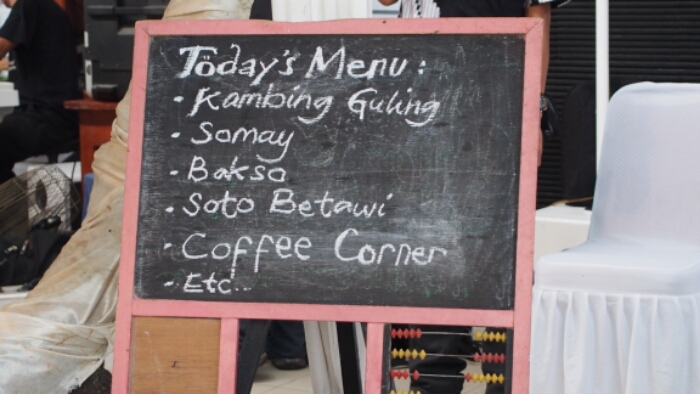 Today's Menu:
- Kambing Guling
- Somay
- Bakso
- Soto Betawi
- Coffee Corner
- Etc..